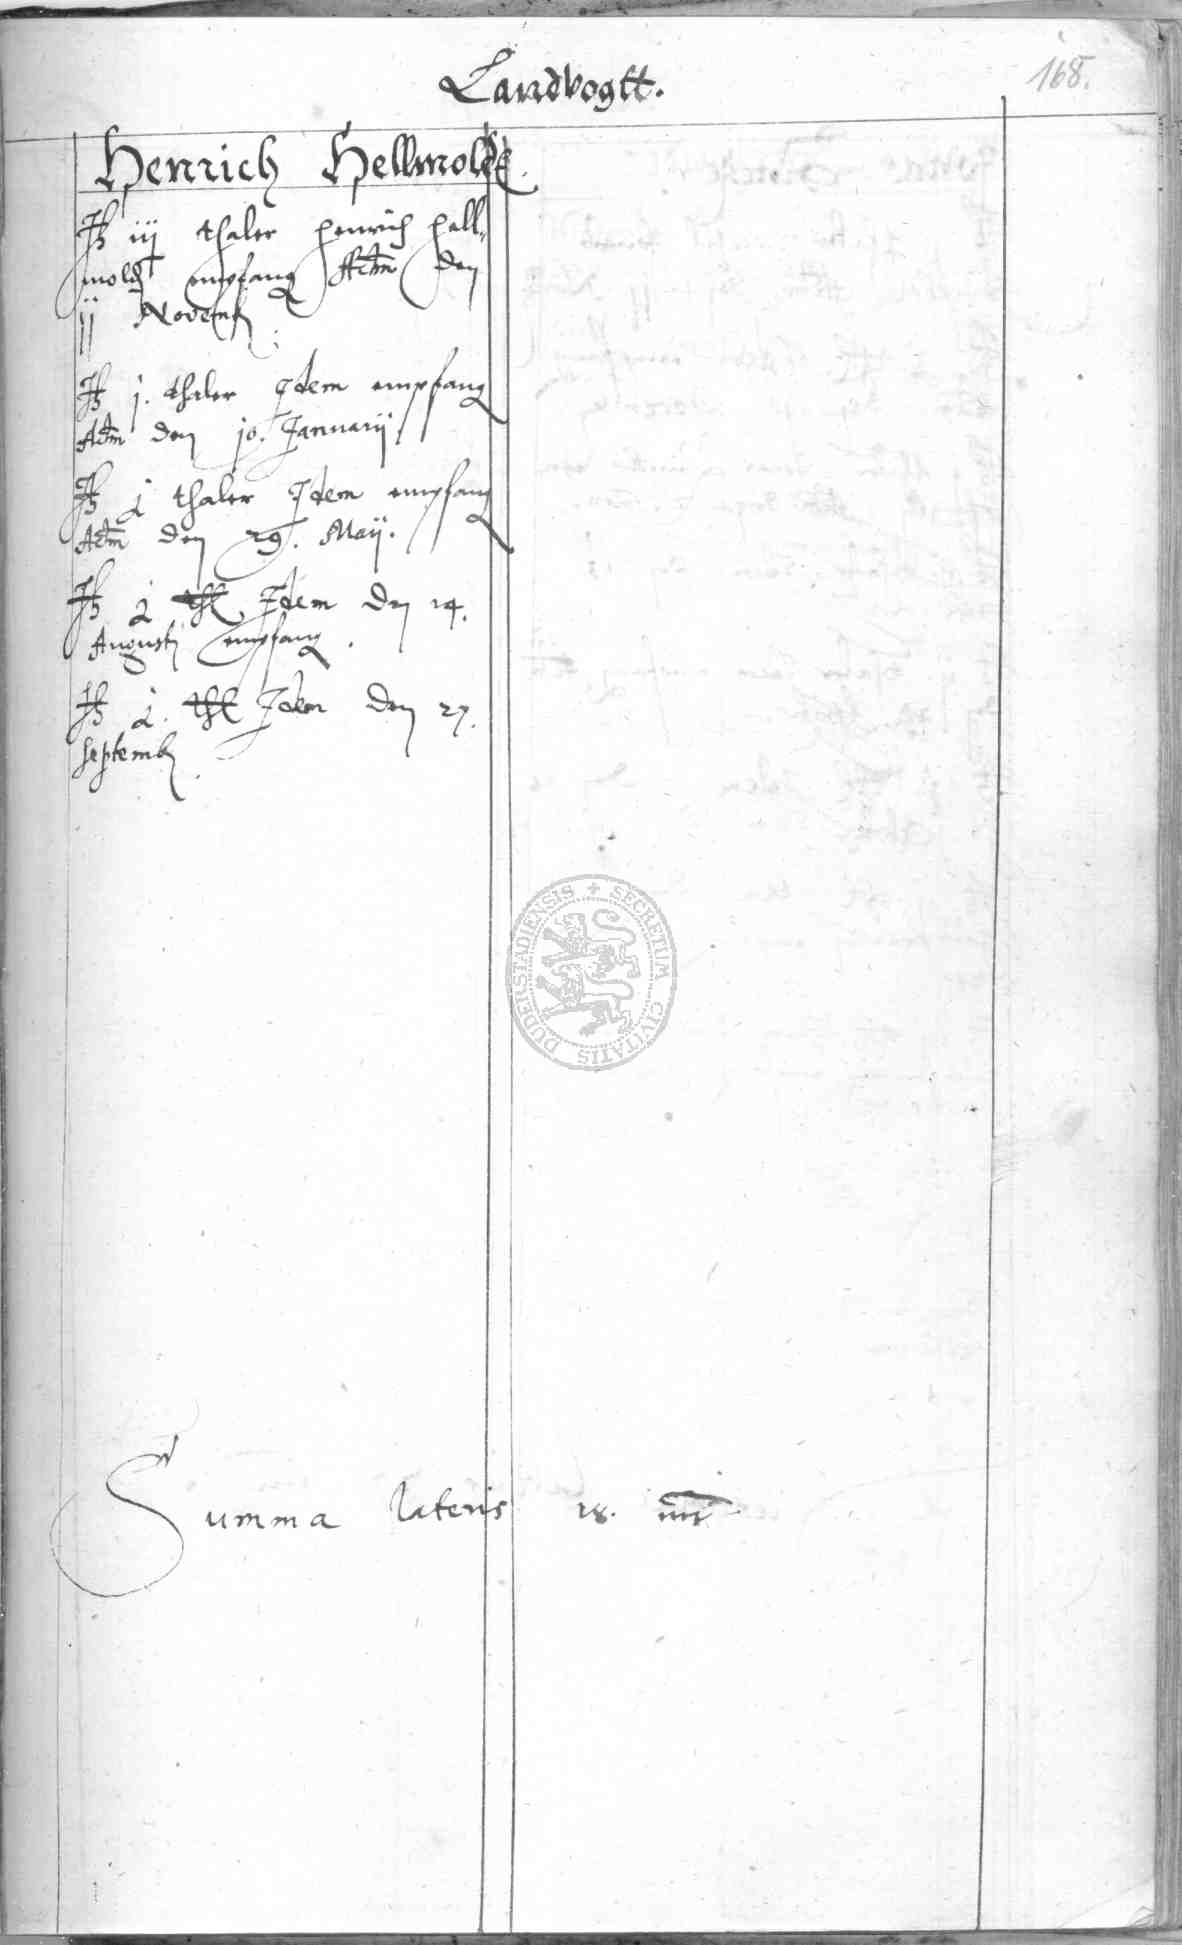 168.
Landvogtt.
Henrich Hellmoldt.
It iij thaler henrich hell-
moldt empfang Actm den
ij Novemb
It j. thaler Idem empfang
Actm den 10. Januarij.
It 1 thaler Idem empfang
Actm den 29. Maij.
It 1 thl Idem den 14.
Augusti empfang.
It 1. thl Idem den 27.
Septemb
DUDERSTADIENSIS + SECRETUM CIVITATIS
Summa lateris 18.